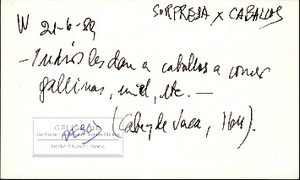 W 21-6-89
SORPRESA x CABALLOS
- Indios les dan a caballos a comer
gallinas, miel, etc. —
(Cabeza de Vaca,